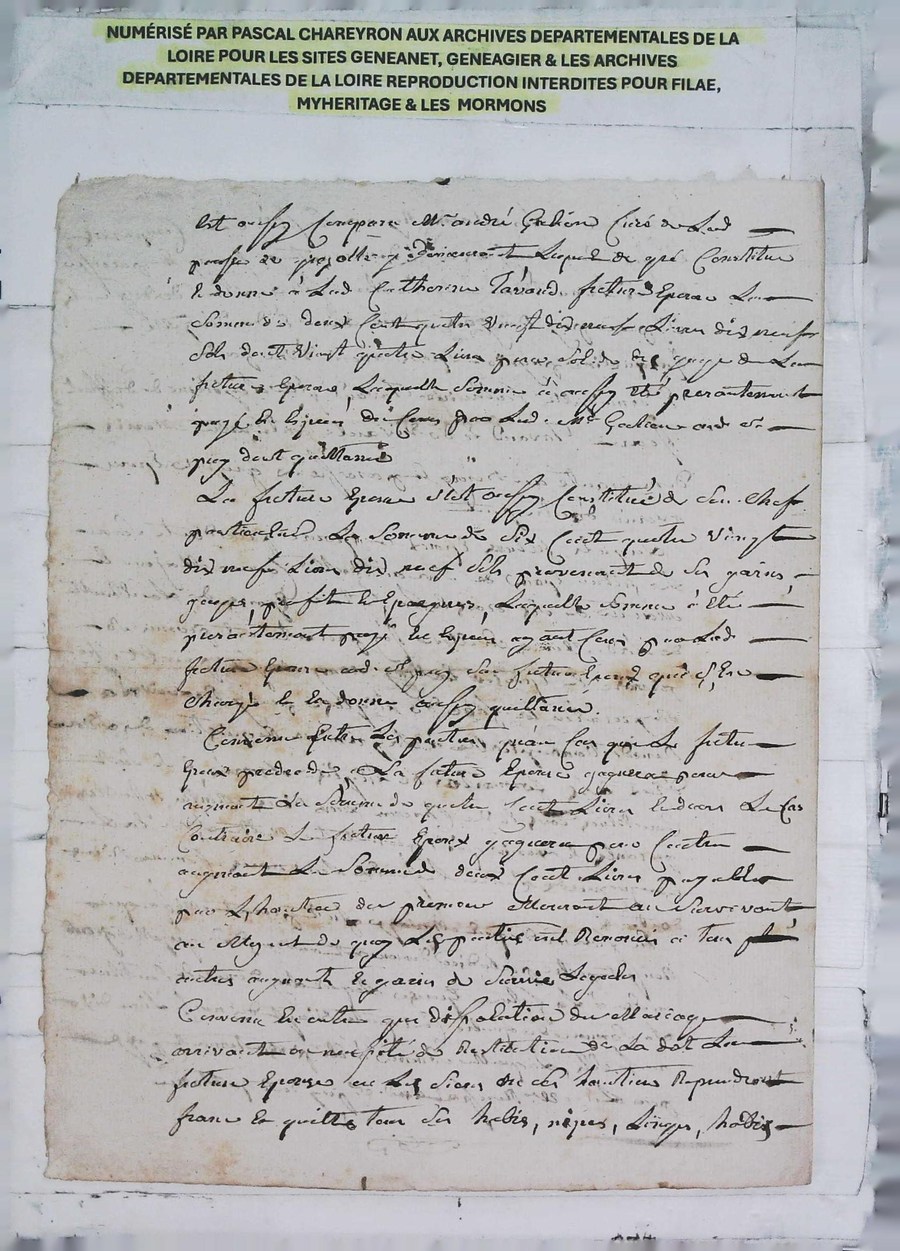 NUMÉRISÉ PAR PASCAL CHAREYRON AUX ARCHIVES DEPARTEMENTALES DE LA
LOIRE POUR LES SITES GENEANET, GENEAGIER & LES ARCHIVES
DEPARTEMENTALES DE LA LOIRE REPRODUCTION INTERDITES POUR FILAE,
MYHERITAGE & LES MORMONS
Est aussy Comparu Mre andré Galien Curé de Lad
de gré Constitue
& donne à Lad Catherine Tavaud future Epouse La
Somme de deux Cent quatre Vingt dix neuf Livres dix neuf
Sols dont Vingt quatre Livres pour Solde des gages de La
future Epouse, Laquelle Somme à aussy été présentement
payé En Espèces de Cours par Led. Mre Galien
dont quittance
La future Epouse s'est aussy Constitué de Son Chef
particulier La Somme de Six Cent quatre Vingt
dix neuf Livres dix neuf Sols provenant de Ses gains
gages profit & Epargnes, Laquelle Somme à été
présentement payé En Espèces ayant Cours par Lad
future Epouse future Epoux qui s'En
Charge & En donne aussy quittance.
Convenu Entre Les parties qu'au Cas que Le futur
Epoux prédécède La future Epouse gagnera pour
augment La Somme de quatre Cent Livres Le Cas
Contraire Le futur Epoux gagnera par Contre
augment La Somme de deux Cent Livres payables
par L'héritier du premier Mourant au Survivant
au Moyen de quoy Les parties ont Renoncés à tous
autres augments & gains de Survie Légales
Convenu En outre que dissolution du Mariage
arrivant de Restitution de La dot La
future Epouse ou Les Siens ou Ses héritiers Reprendront
franc & quitte tous Ses habis, nipes, Linges,